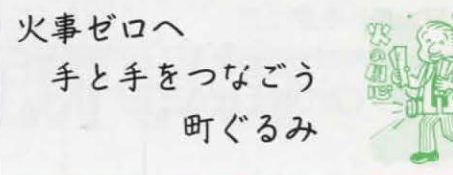 火事ゼロへ
手と手をつなごう
町ぐるみ
火の用心